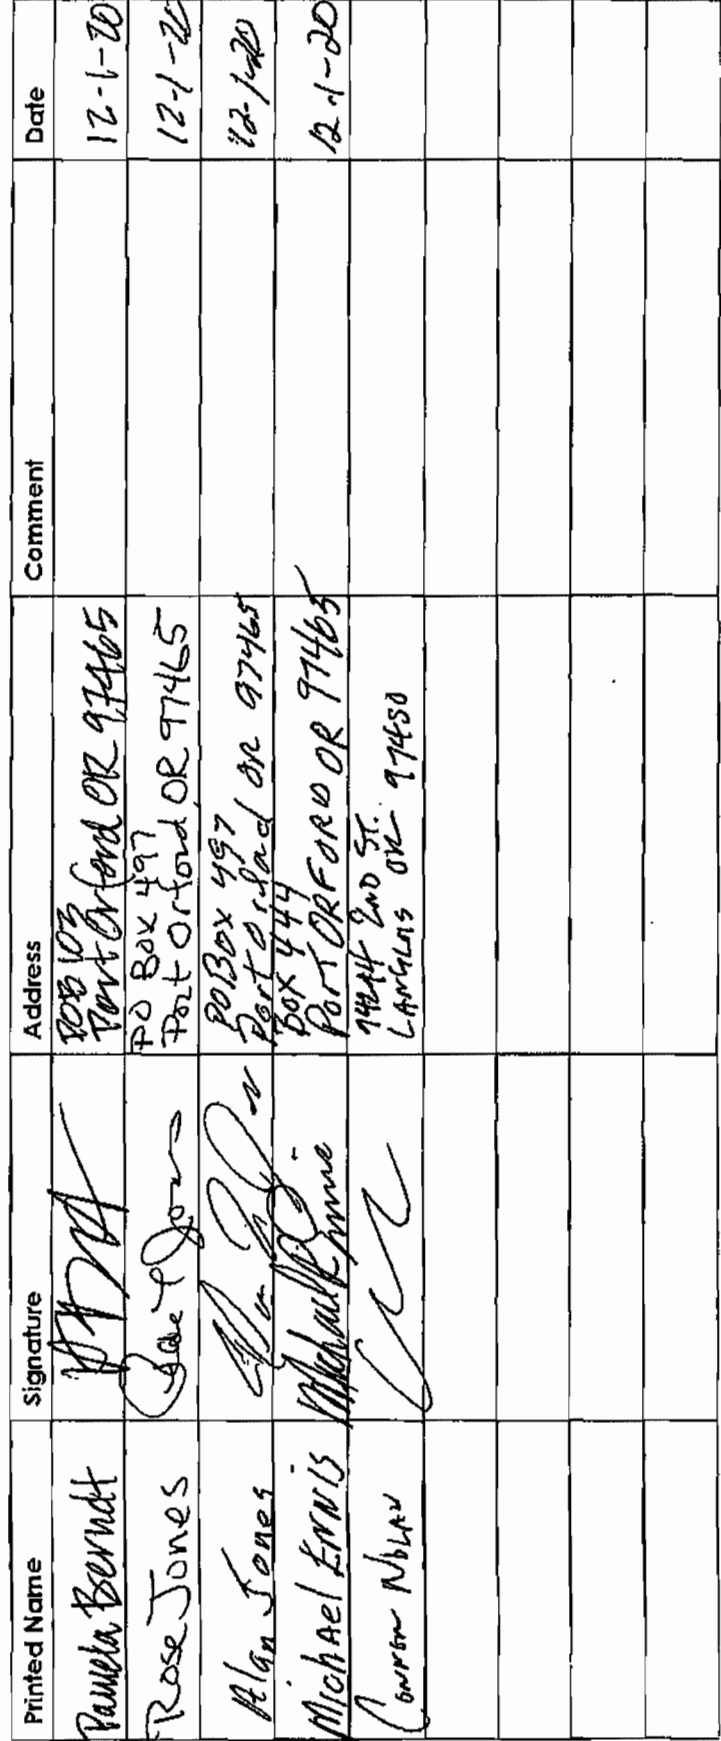 Printed Name Signature Address Comment Date
Pamela Berndt POB 103
Port Orford OR 97465 12-1-20
Rose Jones Rose Jones PO Box 497
Port Orford OR 97465 12-1-20
Alan Jones PO Box 497
Port Orford OR 97465 12-1-20
Michael Ennis Box 444
Port ORFORD OR 97465 12-1-20
Nolan 2nd St.
OR 97450